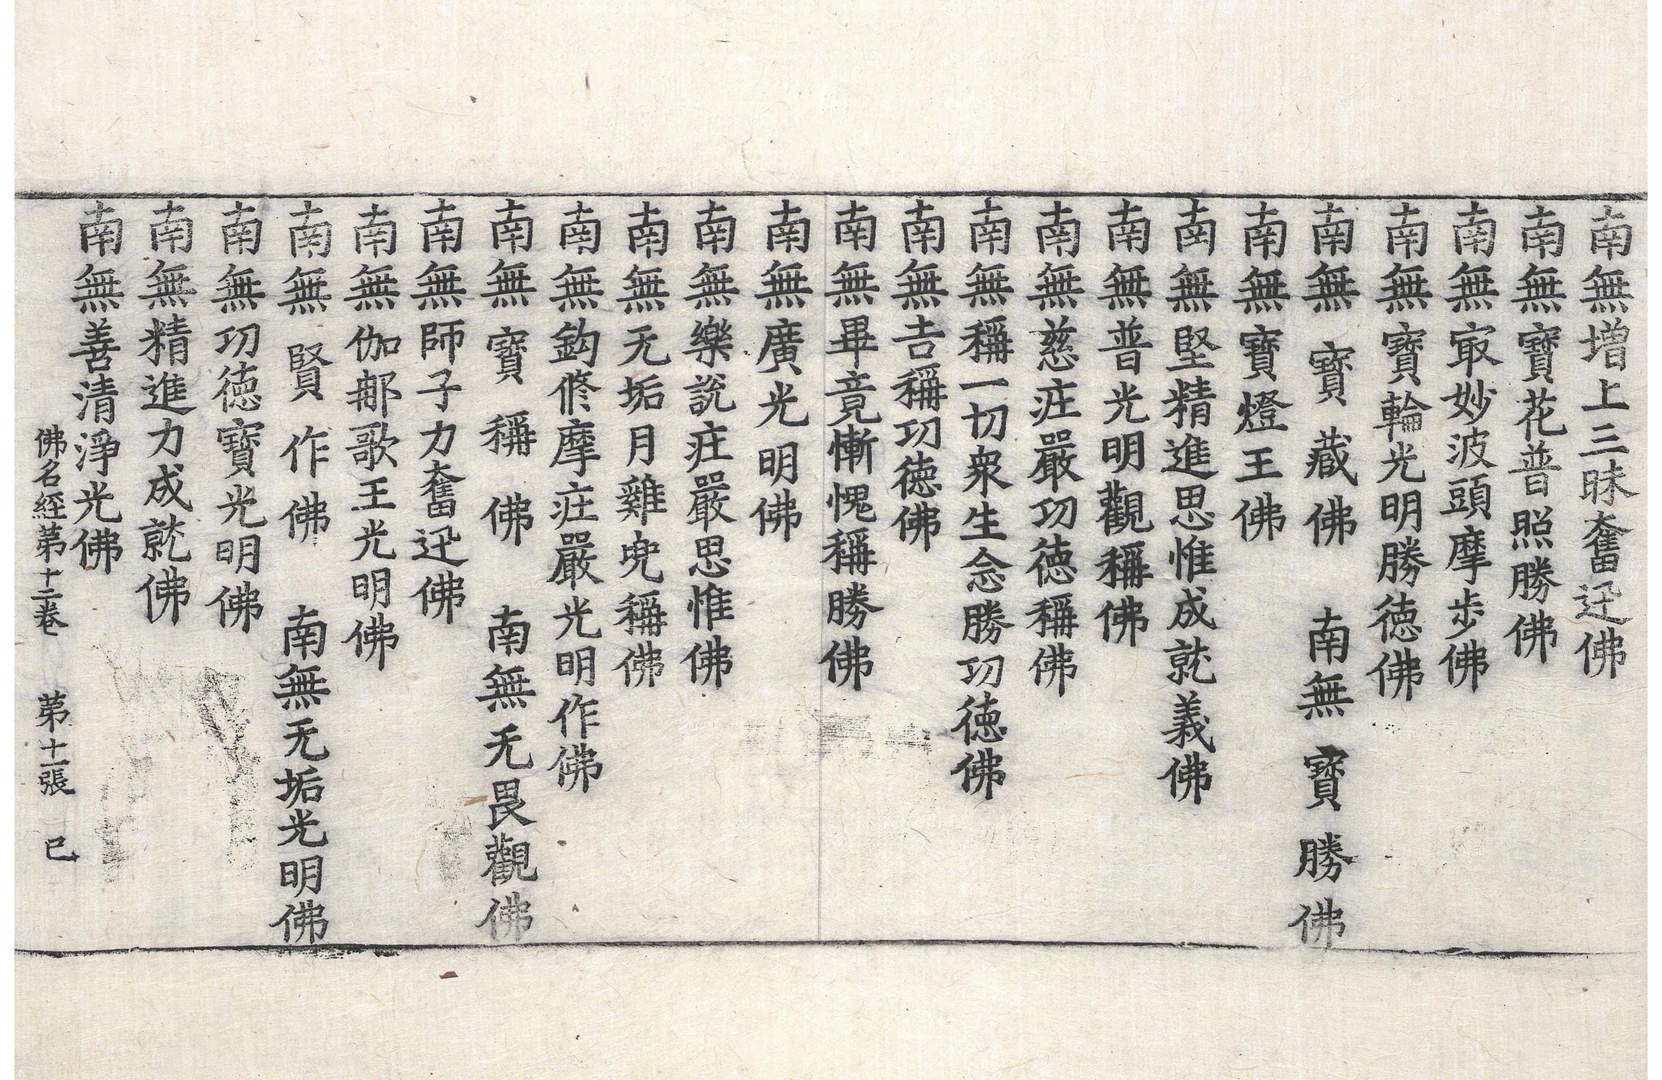 南無増上三昧奮迅佛
南無寶花普照勝佛
南無㝡妙波頭摩步佛
南無寶輪光明勝徳佛
南無寶藏佛　南無寶勝佛
南無寶燈王佛
南無堅精進思惟成就義佛
南無普光明觀稱佛
南無慈庄嚴功徳稱佛
南無稱一切衆生念勝功徳佛
南無吉稱功徳佛
南無畢竟慚愧稱勝佛
南無廣光明佛
南無樂說庄嚴思惟佛
南無无垢月雞兜稱佛
南無鈎修摩庄嚴光明作佛
南無寶稱佛　南無无畏觀佛
南無師子力奮迅佛
南無伽那歌王光明佛
南無賢作佛　南無无垢光明佛
南無功徳寶光明佛
南無精進力成就佛
南無善清淨光佛
佛名經第十二卷　第十一張　已